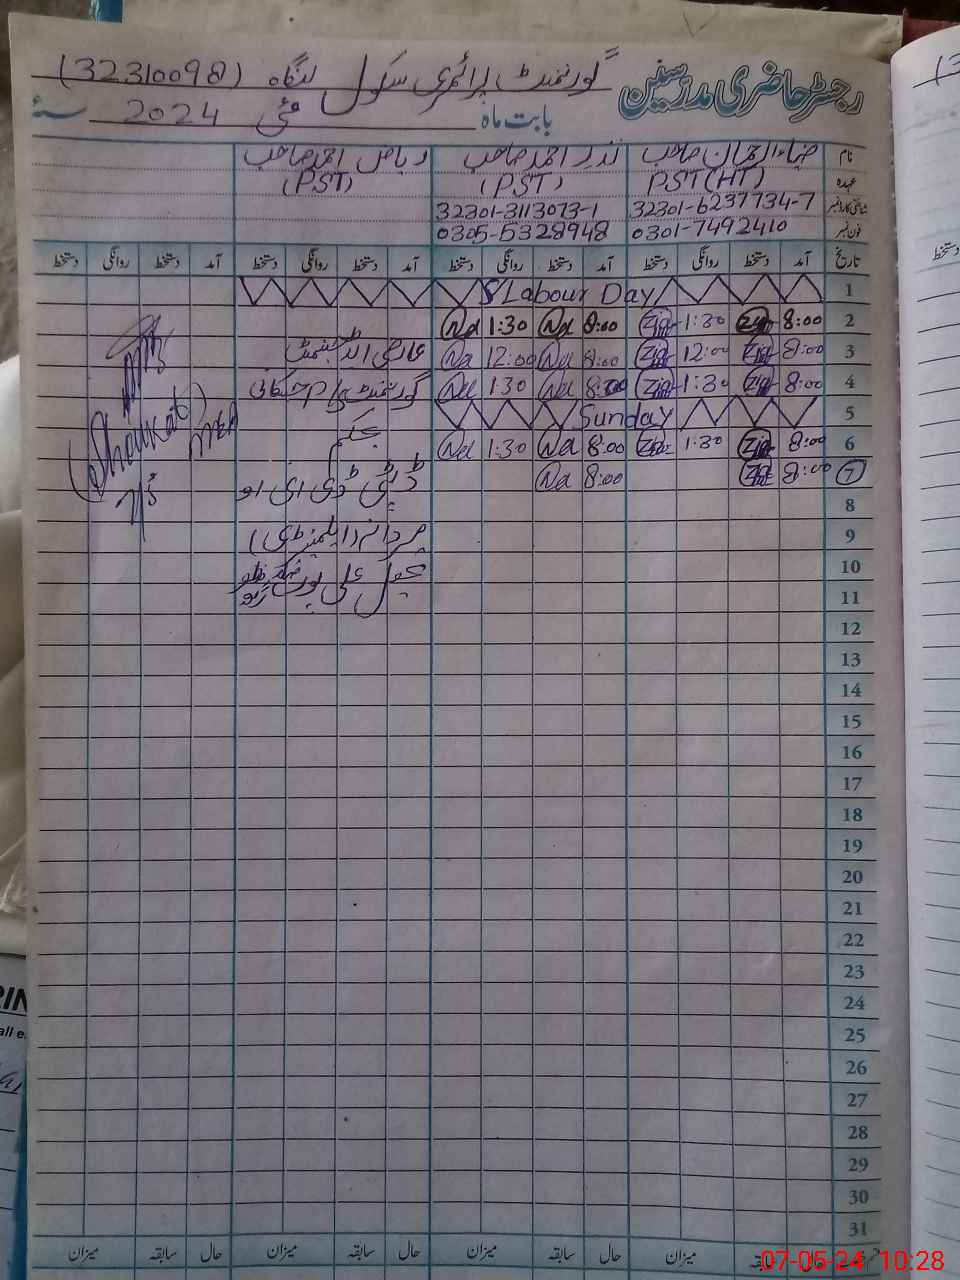 رجسٹر حاضری مدرسین گورنمنٹ پرائمری سکول لنگاہ (32310098)
بابت ماہ مئی 2024 سنہٴ
نام ضیاء الرحمان صاحب نذیر احمد صاحب ریاض احمد صاحب
عہدہ PST(HT) (PST) (PST)
شناختی کارڈ نمبر 32301-6237734-7 32301-3113073-1
فون نمبر 0301-7492410 0305-5328948
تاریخ آمد دستخط روانگی دستخط آمد دستخط روانگی دستخط آمد دستخط روانگی دستخط آمد دستخط روانگی دستخط
1 Labour Day
2 8:00 Zia 1:30 Zia 8:00 Nd 1:30 Nd
3 8:00 Zia 12:00 Zia 8:00 Nd 12:00 Na عارضی
4 8:00 Zia 1:30 Zia 8:00 Nd 1:30 Nd گورنمنٹ
5 Sunday
6 8:00 Zia 1:30 Zia 8:00 Na 1:30 Nd بحکم
7 8:00 Zia 8:00 Na ڈپٹی ڈی ای او
Shoukat
MEA
8
9 مردانہ (ایلیمنٹری)
10
11 تحصیل علی پور ضلع مظفر گڑھ
12
13
14
15
16
17
18
19
20
21
22
23
24
25
26
27
28
29
30
31
حال سابقہ میزان حال سابقہ میزان حال سابقہ میزان
سابقہ میزان
07-05-24 10:28
RIN
all e